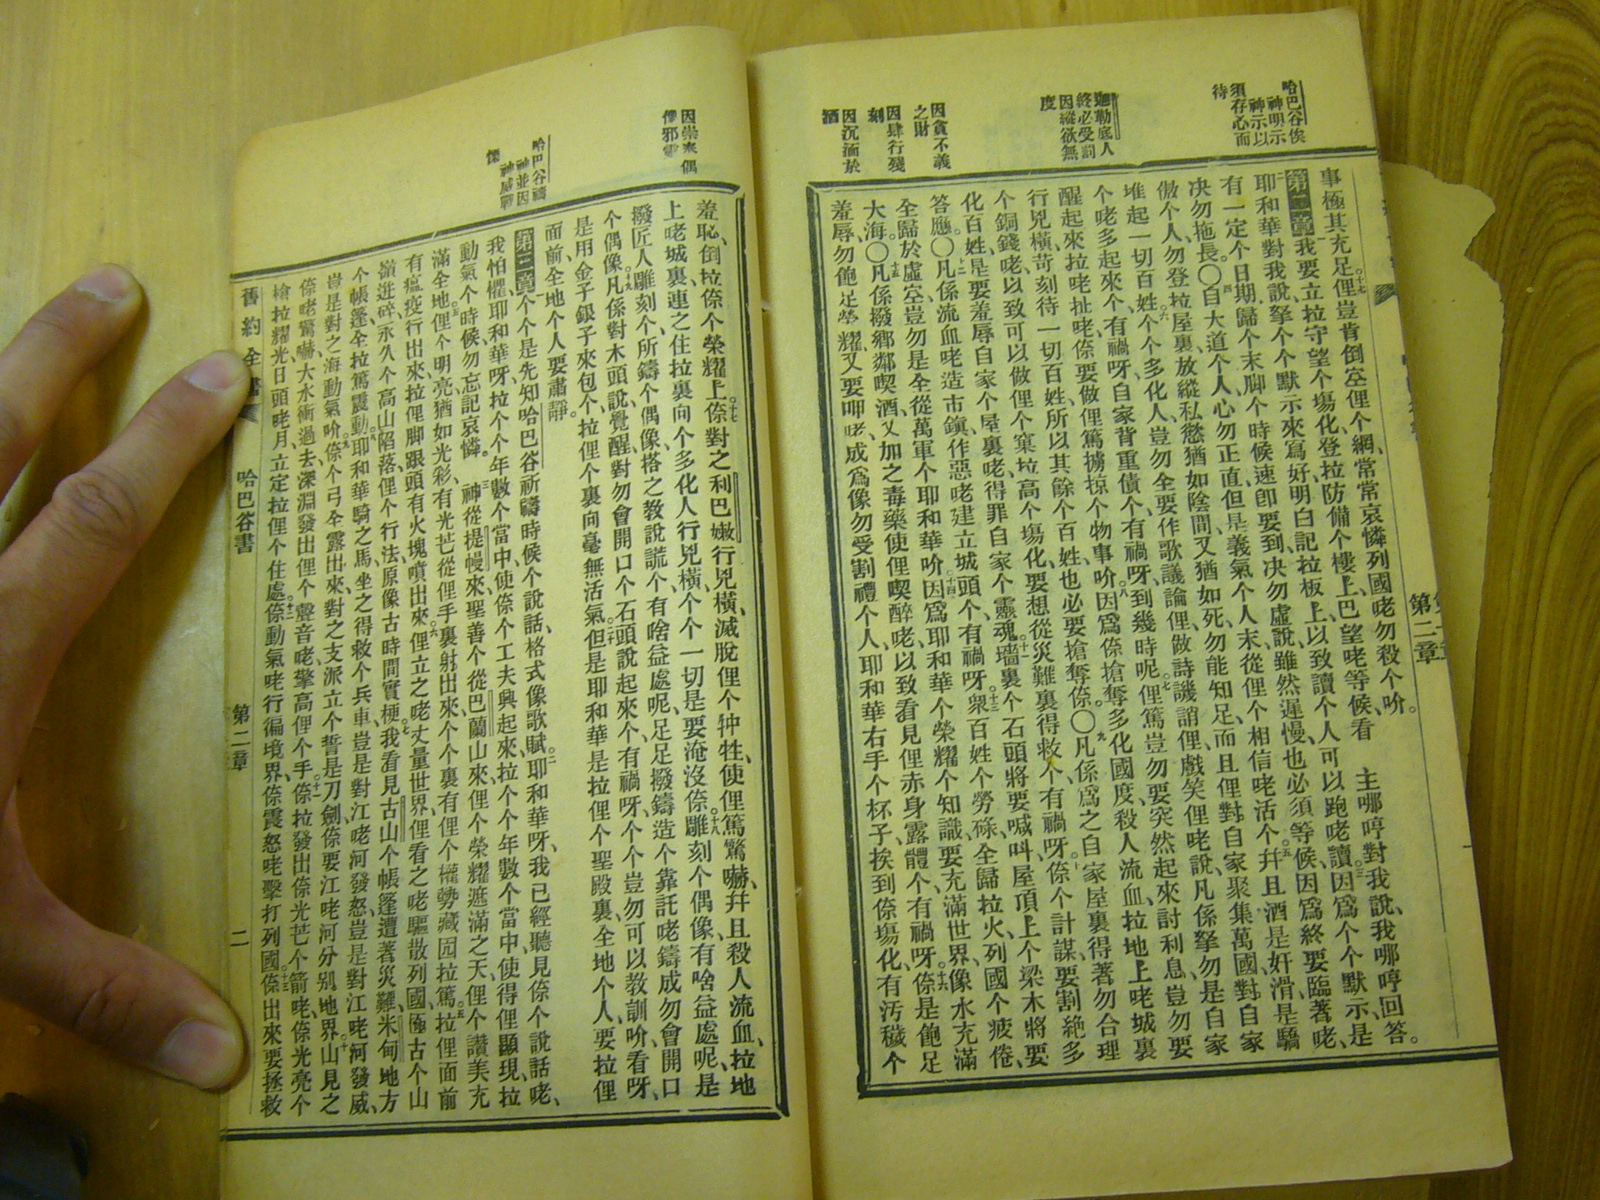 哈巴谷俟
神明示
神示以
須存心而
待
迦勒底人
終必受罰
因縱欲無
度
因貪不義
之財
因肆行殘
刻
因沉湎於
酒
事極其充足俚豈肯倒空俚個網、常常哀憐列國咾勿殺个吤。
第二章我要立拉守望个塲化登拉防備个樓上、巴望咾等候看 主哪哼對我說、我哪哼回答。
耶和華對我說、拏个个默示來寫好、明白記拉板上、以致讀个人可以跑咾讀、因爲个个默示是
有一定个日期、歸个末脚个時候速卽要到、决勿虛說、雖然遲慢、也必須等候、因爲終要臨著咾、
决勿拖長〇自大道个人、心勿正直、但是義氣个人、末從俚个相信咾活个、幷且酒是奸滑、是驕
傲个人、勿登拉屋裏、放縱私慾、猶如陰間、又猶如死、勿能知足、而且俚對自家聚集萬國、對自家
堆起一切百姓、个个多化人、豈勿全要作歌議論俚、做詩譏誚俚、戲笑俚咾說、凡係拏勿是自家
个咾多起來个、有禍呀、自家背重債个、有禍呀、到幾時呢、俚篤豈勿要突然起來討利息、豈勿要
醒起來拉咾扯咾、倷要做俚篤擄掠个物事吤、因爲倷搶奪多化國度、殺人流血、拉地上咾城裏
行兇橫、苛刻待一切百姓、所以其餘个百姓、也必要搶奪倷〇凡係爲之自家屋裏得著勿合理
个銅錢咾、以致可以做俚个窠垃高个塲化、要想從災難裏得救个、有禍呀、倷个計謀、要割絶多
化百姓、是要羞辱自家个屋裏咾、得罪自家个靈魂、墻裏个石頭將要喊叫、屋頂上个梁木將要
答應〇凡係流血咾造市鎭、作惡咾建立城頭个、有禍呀、衆百姓个勞碌、全歸拉火、列國个疲倦、
全歸於虛空、豈勿是全從萬軍个耶和華吤、因爲耶和華个榮耀个知識、要充滿世界、像水充滿
大海〇凡係撥鄉鄰喫酒、又加之毒藥、使俚喫醉咾、以致看見俚赤身露體个、有禍呀、倷是飽足
羞辱、勿飽足榮耀、又要呷咾、成爲像勿受割禮个人、耶和華右手个杯子、挨到倷塲化、有汚穢个
第二章
因崇奉偶
像邪靈
哈巴谷禱
神並因
神威戰
慄
羞恥、倒拉倷个榮耀上、倷對之利巴嫩行兇橫、滅脫俚个牲、使俚篤驚嚇、幷且殺人流血、拉地
上咾城裏、連之住拉裏向个多化人、行兇橫个个一切、是要淹沒倷、雕刻个偶像、有啥益處呢、是
撥匠人雕刻个、所鑄个偶像、搭之敎說謊个、有啥益處呢、足足撥鑄造个靠託咾、鑄成勿會開口
个偶像、凡係對木頭說、覺醒、對勿會開口个石頭說、起來个、有禍呀、个个豈勿可以敎訓吤、看呀、
是用金子銀子來包个、拉俚个裏向毫無活氣、但是耶和華是拉俚个聖殿裏、全地个人、要拉俚
面前、全地个人要肅靜。
第三章个个是先知哈巴谷祈禱時候个說話、格式像歌賦、耶和華呀、我已經聽見倷个說話咾、
我怕懼、耶和華呀、拉个个年數个當中、使倷个工夫興起來、拉个个年數个當中、使得俚顯現、拉
動氣个時候、勿忘記哀憐。 神從提慢來、聖善个從巴蘭山來、俚个榮耀遮滿之天、俚个讚美充
滿全地、俚个明亮、猶如光彩、有光芒從俚手裏射出來、个个裏有俚个權勢藏囥拉篤、拉俚面前
有瘟疫行出來、拉俚脚跟頭有火塊噴出來、俚立之咾丈量世界、俚看之咾驅散列國、極古个山
嶺迸碎、永久个高山陷落、俚个行法、原像古時間實梗、我看見古山个帳篷遭著災難、米甸地方
个帳篷全拉篤震動、耶和華騎之馬、坐之得救个兵車、豈是對江咾河發怒、豈是對江咾河發威、
豈是對之海動氣吤、倷个弓全露出來、對之支派立个誓是刀劍、倷要江咾河分別地界、山見之
倷咾驚嚇、大水衝過去、深淵發出俚个聲音咾、擎高俚个手、倷拉發出倷光芒个箭咾、倷光亮个
槍拉耀光、日頭咾月、立定拉俚个住處、倷動氣咾行徧境界、倷震怒咾擊打列國、倷出來要拯救
舊約全書 哈巴谷書 第二章 二